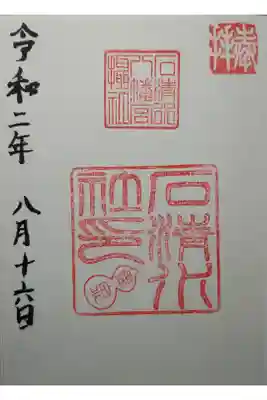 奉拝
石清水
八幡宮
攝社
石清水
社印
令和二年 八月十六日